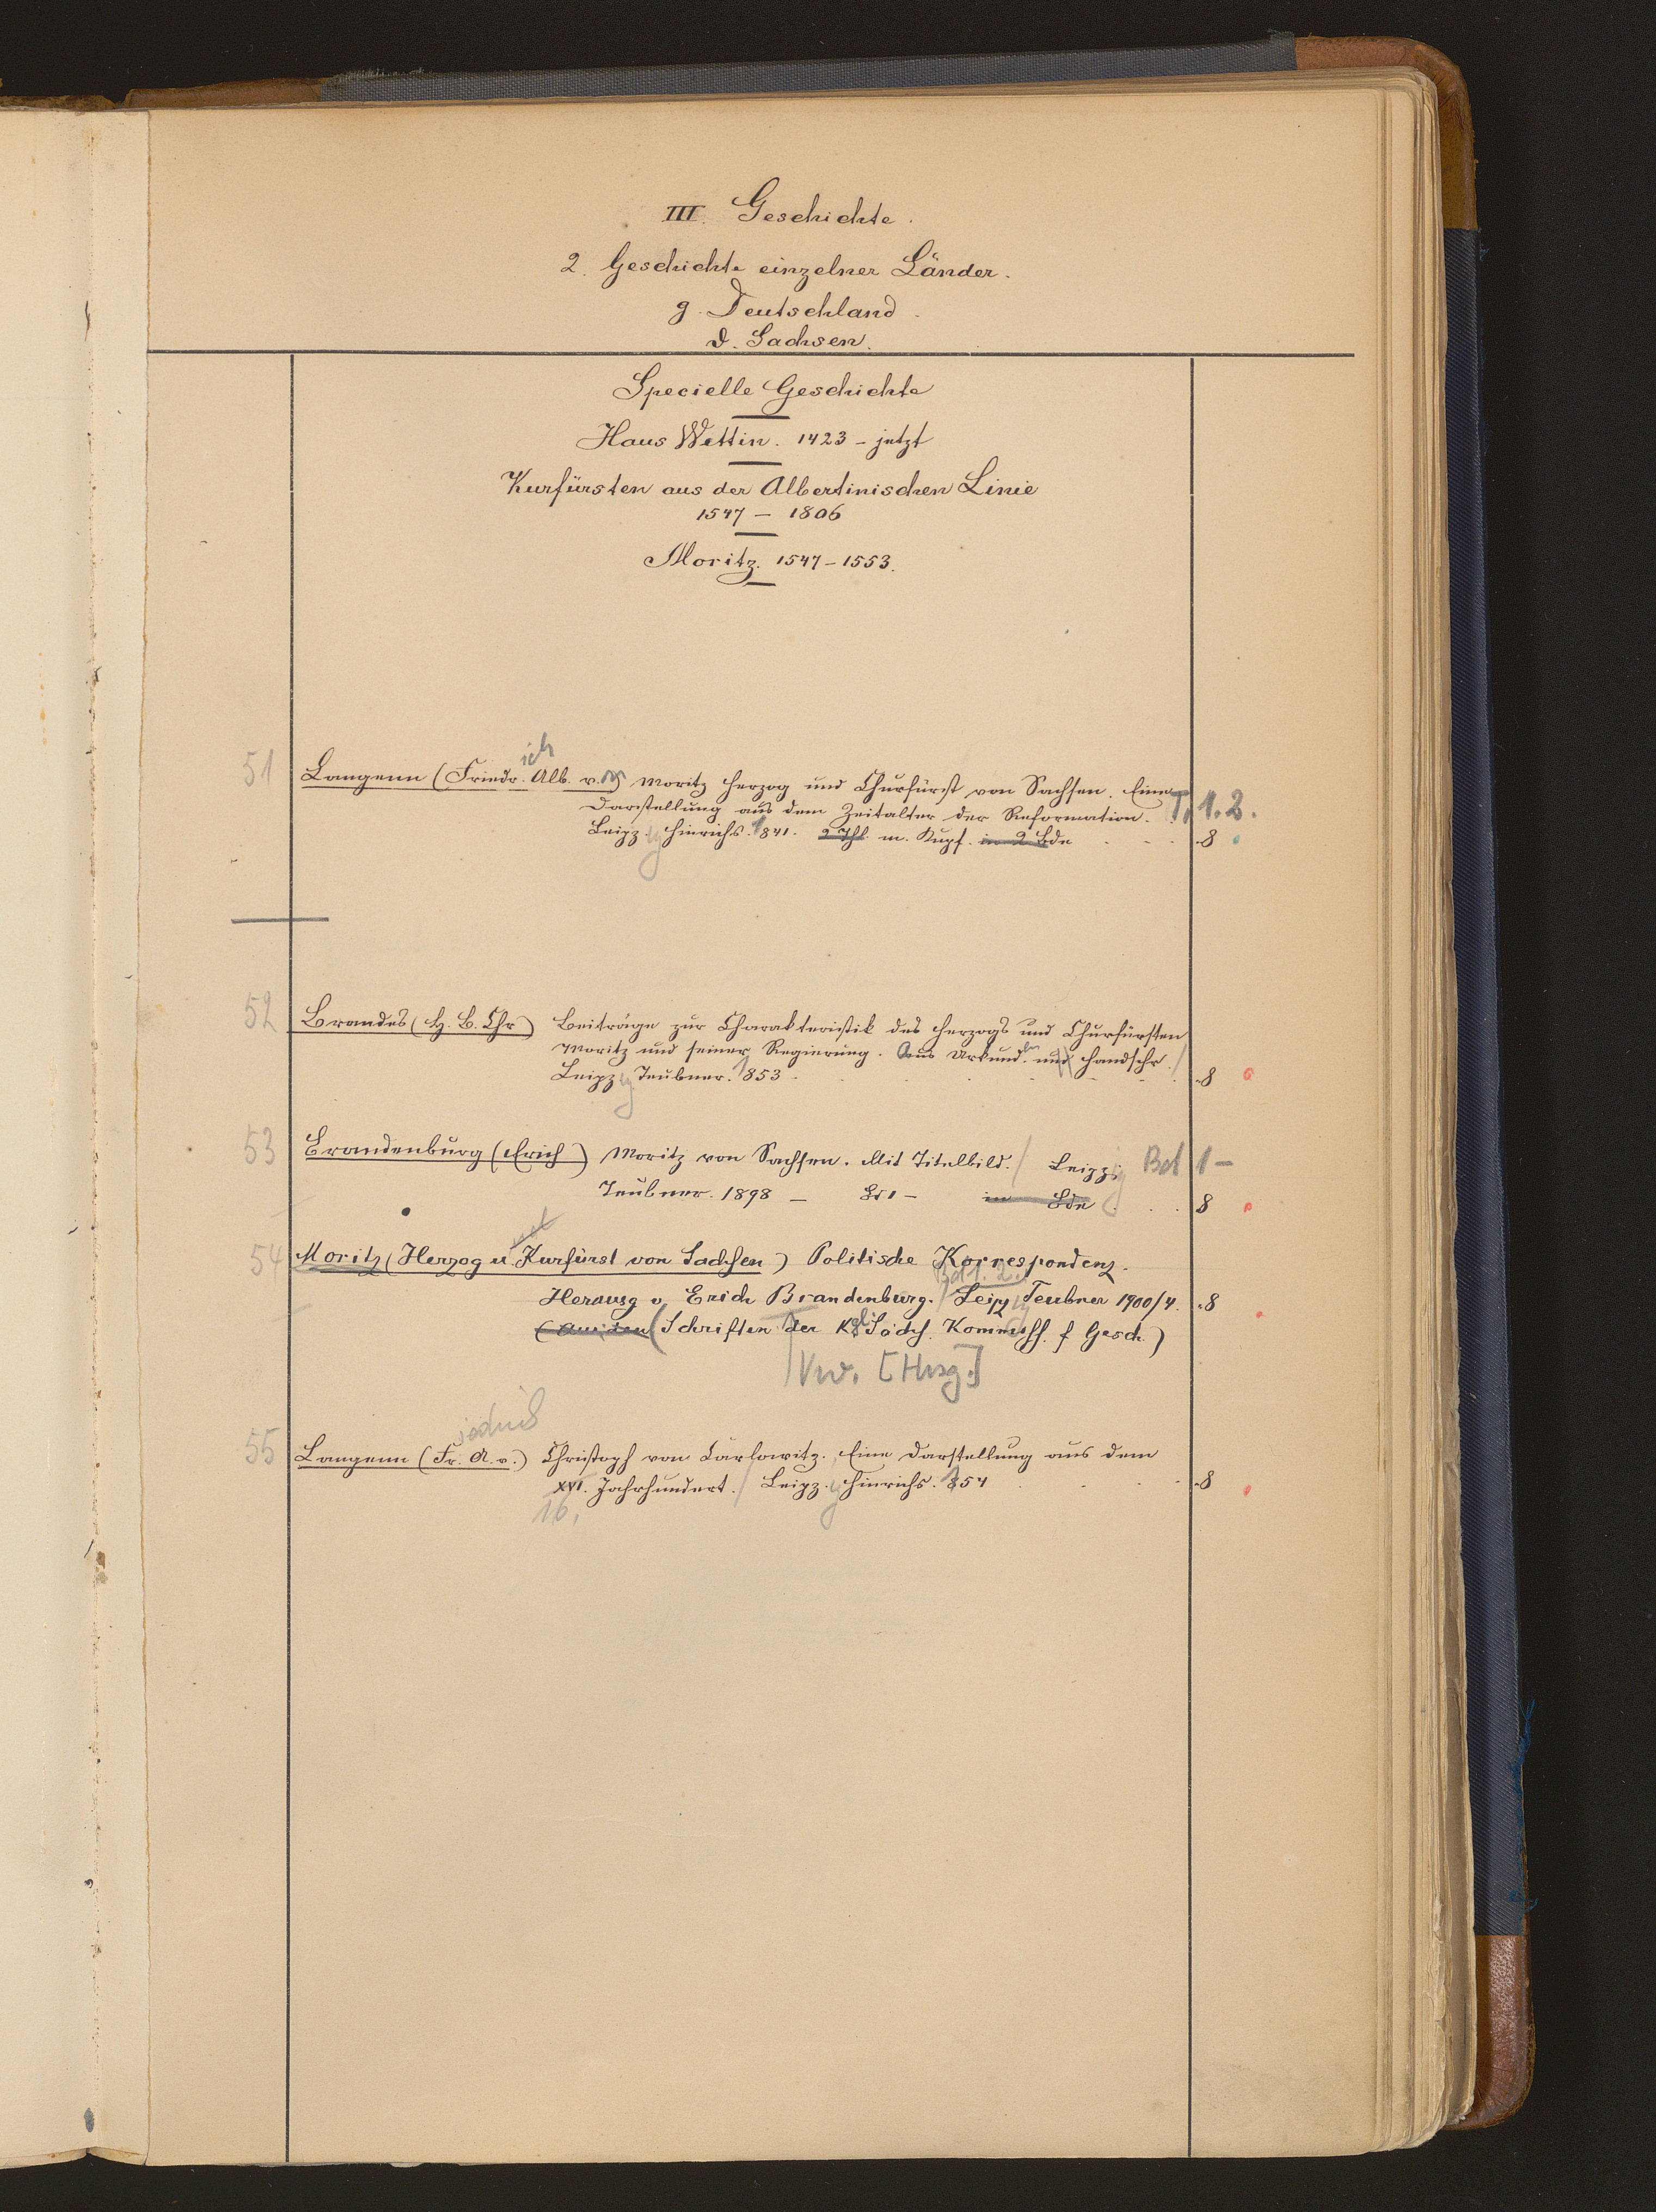 III. Geschichte.
2. Geschichte einzelner Länder.
g. Deutschland.
d. Sachsen.
Specielle Geschichte
Haus Wettin. 1423 - jetzt
Kurfürsten aus der Albertinischen Linie
1547 - 1806
Moritz. 1547-1553.
ich
51 Langenn (Friedr. Alb. v.) Moritz Herzog und Churfürst von Sachsen. Eine
Darstellung aus dem Zeitalter der Reformation. T. 1.2.
Leipz. Hinrichs. 1841. 2 Thl. m. Kupf. in 2 Bde 8
52 Brandes (H. B. Chr) Beiträge zur Charakteristik des Herzogs und Churfürsten
Moritz und seiner Regierung. Aus Urkund. und Handschr.
Leipz. Teubner. 1853 8
53 Brandenburg (Erich) Moritz von Sachsen. Mit Titelbild. Leipzig Bd 1-
Teubner. 1898 - Bd 1 - in Bde 8
54 Moritz (Herzog u. Kurfürst von Sachsen) Politische Korrespondenz.
Bd 1. 2.
Herausg v. Erich Brandenburg. Leipz Teubner 1900/4. 8
(Schriften der Kgl Sächs. Kommiss. f Gesch.)
Vw. [Hrsg.]
55 Langenn (Fr. A. v.) Christoph von Carlowitz. Eine Darstellung aus dem
XVI. Jahrhundert. Leipz. Hinrichs. 1854 8
16.